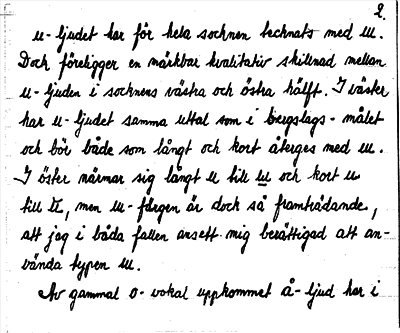 2.
u-ljudet har för hela socknen tecknats med ɯ.
Dock föreligger en märkbar kvalitativ skillnad mellan
u-ljuden i socknens västra och östra hälft. I väster
har u-ljudet samma uttal som i bergslags-målet
och bör både som långt och kort återges med ɯ.
I öster närmar sig långt u till och kort u
till, men ɯ-färgen är dock så framträdande,
att jag i båda fallen ansett mig berättigad att an-
vända typen ɯ.
Av gammal o-vokal uppkommet å-ljud har i